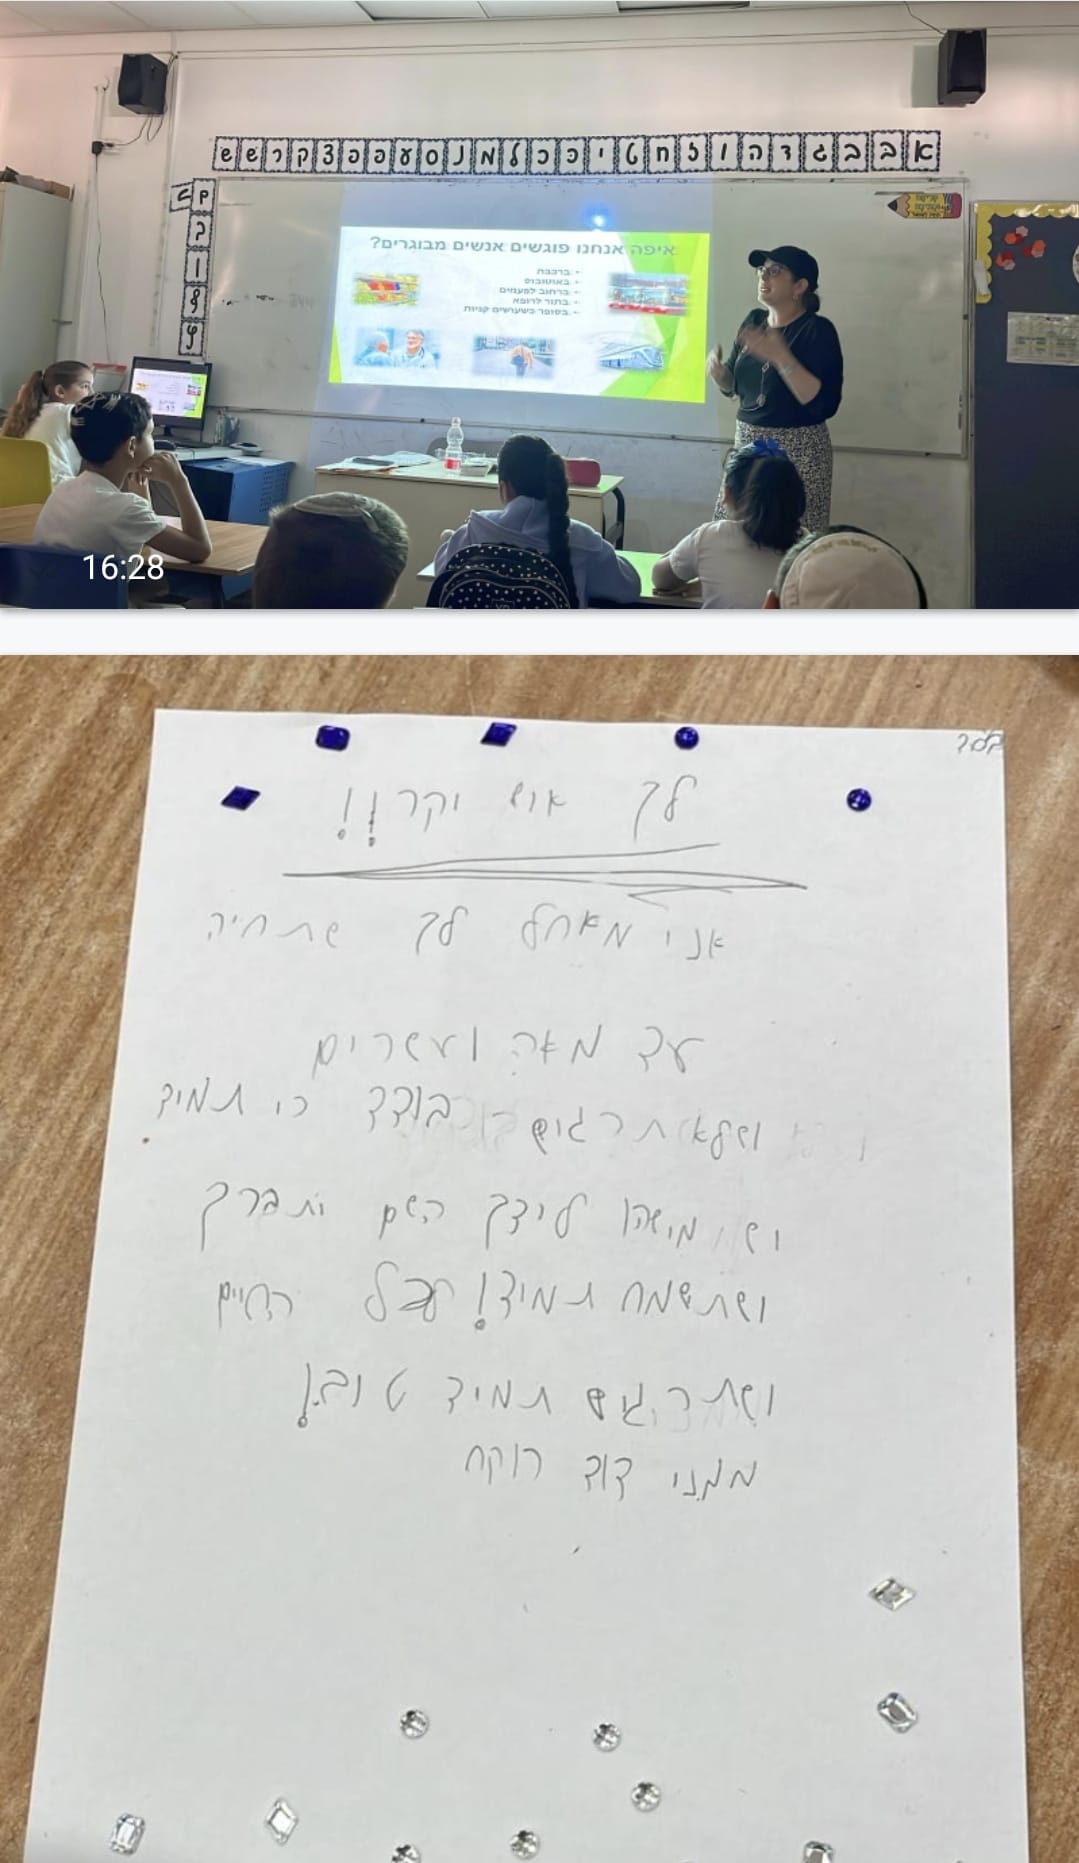 א ב ב ג ד ה ו ז ח ט י כ כ ל מ נ ס ע פ פ צ ק ר ש ש
איפה אנחנו פוגשים אנשים מבוגרים?
ברכבת
באוטובוס
ברחוב לפעמים
בתור לרופא
בסופר כשעושים קניות
16:28
בס"ד
לך איש יקר!!
אני מאחל לך שתחיה
עד מאה ועשרים
ושלא תרגיש בודד כי תמיד
יש מישהו לידך השם יתברך
ושתשמח תמיד! לכל החיים
ושתרגיש תמיד טוב!
ממני דוד רוקח